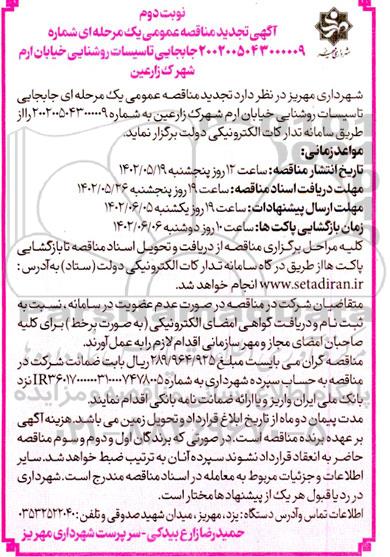 نوبت دوم
آگهی تجدید مناقصه عمومی یک مرحله ای شماره
۲۰۰۲۰۰۵۰۴۳۰۰۰۰۰۹ جابجایی تاسیسات روشنایی خیابان ارم
شهرک زارعین
شهرداری مهریز در نظر دارد تجدید مناقصه عمومی یک مرحله ای جابجایی
تاسیسات روشنایی خیابان ارم شهرک زارعین به شماره ۲۰۰۲۰۰۵۰۴۳۰۰۰۰۰۹ را از
طریق سامانه تدارکات الکترونیکی دولت برگزار نماید.
مواعد زمانی:
تاریخ انتشار مناقصه: ساعت ۱۲ روز پنجشنبه ۱۴۰۲/۰۵/۱۹
مهلت دریافت اسناد مناقصه: ساعت ۱۹ روز پنجشنبه ۱۴۰۲/۰۵/۲۶
مهلت ارسال پیشنهادات: ساعت ۱۹ روز یکشنبه ۱۴۰۲/۰۶/۰۵
زمان بازگشایی پاکت ها: ساعت ۱۰ روز دوشنبه ۱۴۰۲/۰۶/۰۶
کلیه مراحل برگزاری مناقصه از دریافت و تحویل اسناد مناقصه تا بازگشایی
پاکت ها از طریق درگاه سامانه تدارکات الکترونیکی دولت (ستاد) به آدرس:
www.setadiran.ir انجام خواهد شد.
متقاضیان شرکت در مناقصه در صورت عدم عضویت در سامانه، نسبت به
ثبت نام و دریافت گواهی امضای الکترونیکی (به صورت برخط) برای کلیه
صاحبان امضای مجاز و مهر سازمانی اقدام لازم را به عمل آورند.
مناقصه گران می بایست مبلغ ۲۸۹/۹۶۴/۹۲۵ ریال بابت ضمانت شرکت در
مناقصه به حساب سپرده شهرداری به شماره نزد
بانک ملی ایران واریز و یا ارائه ضمانت نامه بانکی اقدام نمایند.
مدت پیمان دو ماه از تاریخ ابلاغ قرارداد و تحویل زمین می باشد. هزینه آگهی
بر عهده برنده مناقصه است. در صورتی که برندگان اول و دوم و سوم مناقصه
حاضر به انعقاد قرارداد نشوند سپرده آنان به ترتیب ضبط خواهد شد. سایر
اطلاعات و جزئیات مربوط به معامله در اسناد مناقصه مندرج است. شهرداری
در رد یا قبول هر یک از پیشنهادها مختار است.
اطلاعات تماس و آدرس دستگاه: یزد، مهریز، میدان شهید صدوقی و تلفن: ۰۳۵۳۲۵۲۲۰۴۰
حمیدرضا زارع بیدکی - سرپرست شهرداری مهریز